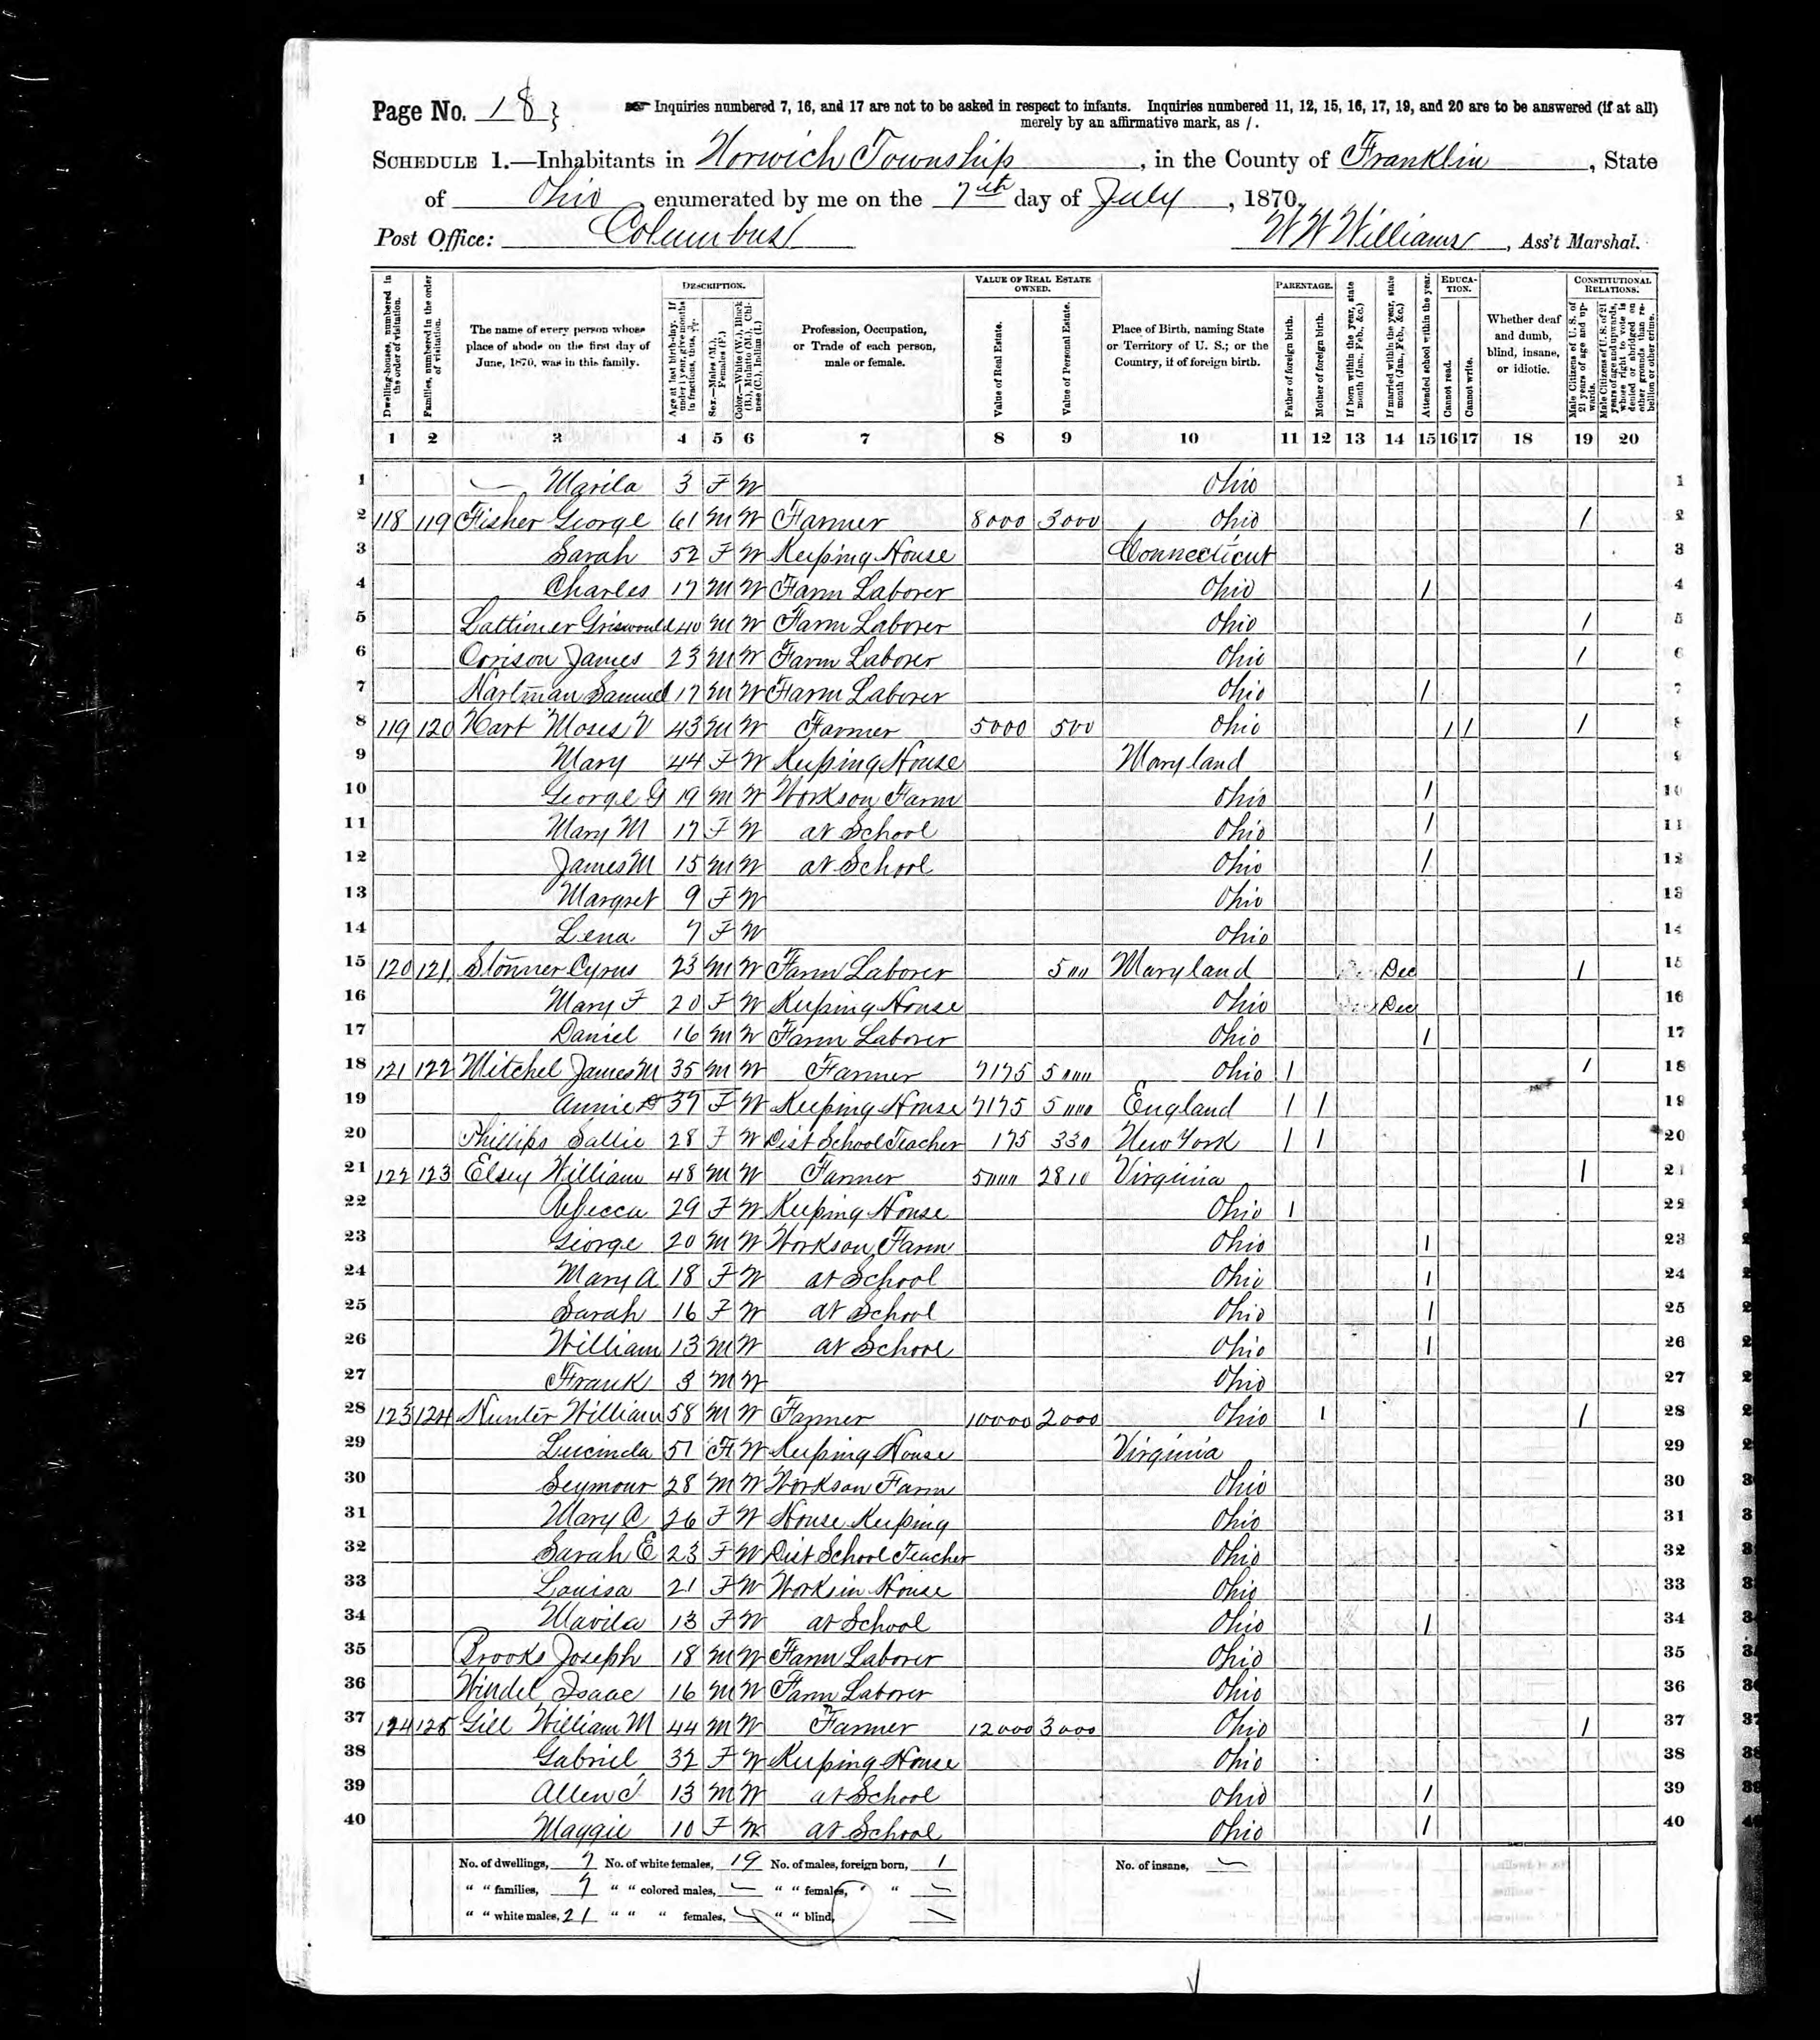 Page No. 18 } Inquiries numbered 7, 16, and 17 are not to be asked in respect to infants. Inquiries numbered 11, 12, 15, 16, 17, 19, and 20 are to be answered (if at all)
merely by an affirmative mark, as /.
SCHEDULE 1.—Inhabitants in Norwich Township, in the County of Franklin, State
of Ohio, enumerated by me on the 7th day of July, 1870.
Post Office: Columbus W W Williams, Ass't Marshal.
Dwelling-houses, numbered in the order of visitation.
Families, numbered in the order of visitation.
The name of every person whose place of abode on the first day of June, 1870, was in this family.
DESCRIPTION.
Age at last birth-day. If under 1 year, give months in fractions, thus, 3/12.
Sex.—Males (M.), Females (F.)
Color.—White (W.), Black (B.), Mulatto (M.), Chinese (C.), Indian (I.)
Profession, Occupation, or Trade of each person, male or female.
VALUE OF REAL ESTATE OWNED.
Value of Real Estate.
Value of Personal Estate.
Place of Birth, naming State or Territory of U. S.; or the Country, if of foreign birth.
PARENTAGE.
Father of foreign birth.
Mother of foreign birth.
If born within the year, state month (Jan., Feb., &c.)
If married within the year, state month (Jan., Feb., &c.)
Attended school within the year.
EDUCATION.
Cannot read.
Cannot write.
Whether deaf and dumb, blind, insane, or idiotic.
CONSTITUTIONAL RELATIONS.
Male Citizens of U. S. of 21 years of age and upwards.
Male Citizens of U. S. of 21 years of age and upwards, whose right to vote is denied or abridged on other grounds than rebellion or other crime.
1 2 3 4 5 6 7 8 9 10 11 12 13 14 15 16 17 18 19 20
1 — Marila 3 F W Ohio 1
2 118 119 Fisher George 61 M W Farmer 8000 3000 Ohio / 2
3 Sarah 52 F W Keeping House Connecticut 3
4 Charles 17 M W Farm Laborer Ohio / 4
5 Lattimer Griswould 40 M W Farm Laborer Ohio / 5
6 Orrison James 23 M W Farm Laborer Ohio / 6
7 Hartman Samuel 17 M W Farm Laborer Ohio / 7
8 119 120 Hart Moses V 43 M W Farmer 5000 500 Ohio / / / 8
9 Mary 44 F W Keeping House Maryland 9
10 George G 19 M W Works on Farm Ohio / 10
11 Mary M 17 F W at School Ohio / 11
12 James M 15 M W at School Ohio / 12
13 Margret 9 F W Ohio 13
14 Lena 7 F W Ohio 14
15 120 121 Stonner Cyrus 23 M W Farm Laborer 500 Maryland Dec / 15
16 Mary F 20 F W Keeping House Ohio Dec 16
17 Daniel 16 M W Farm Laborer Ohio / 17
18 121 122 Mitchel James M 35 M W Farmer 7175 5000 Ohio / / 18
19 Annie 37 F W Keeping House 7175 5000 England / / 19
20 Phillips Sallie 28 F W Dist School Teacher 175 330 New York / / 20
21 122 123 Elsey William 48 M W Farmer 5000 2810 Virginia / 21
22 Rebecca 29 F W Keeping House Ohio / 22
23 George 20 M W Works on Farm Ohio / 23
24 Mary A 18 F W at School Ohio / 24
25 Sarah 16 F W at School Ohio / 25
26 William 13 M W at School Ohio / 26
27 Frank 3 M W Ohio 27
28 123 124 Hunter William 58 M W Farmer 10000 2000 Ohio / / 28
29 Lucinda 51 F W Keeping House Virginia 29
30 Seymour 28 M W Works on Farm Ohio 30
31 Mary C 26 F W House Keeping Ohio 31
32 Sarah E 23 F W Dist School Teacher Ohio 32
33 Louisa 21 F W Works in House Ohio 33
34 Mavila 13 F W at School Ohio / 34
35 Brooks Joseph 18 M W Farm Laborer Ohio 35
36 Windel Isaac 16 M W Farm Laborer Ohio 36
37 124 125 Gill William M 44 M W Farmer 12000 3000 Ohio / 37
38 Gabriel 32 F W Keeping House Ohio 38
39 Allen 13 M W at School Ohio / 39
40 Maggie 10 F W at School Ohio / 40
No. of dwellings, 7 No. of white females, 19 No. of males, foreign born, 1 No. of insane, —
" " families, 7 " " colored males, — " " females, " " —
" " white males, 21 " " " females, — " " blind, —